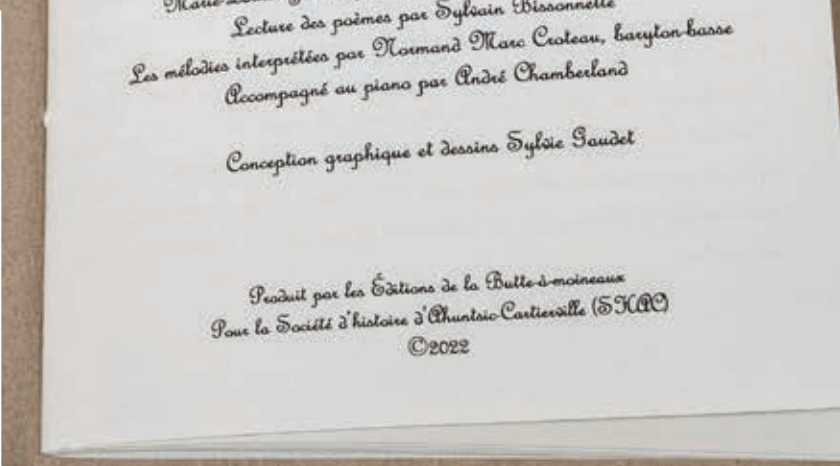 Lecture des poèmes par Sylvain Bissonnette
Les mélodies interprétées par Normand Marc Croteau, baryton-basse
Accompagné au piano par André Chamberland
Conception graphique et dessins Sylvie Gaudet
Produit par les Éditions de la Butte-à-moineaux
Pour la Société d'histoire d'Ahuntsic-Cartierville (SHAC)
©2022